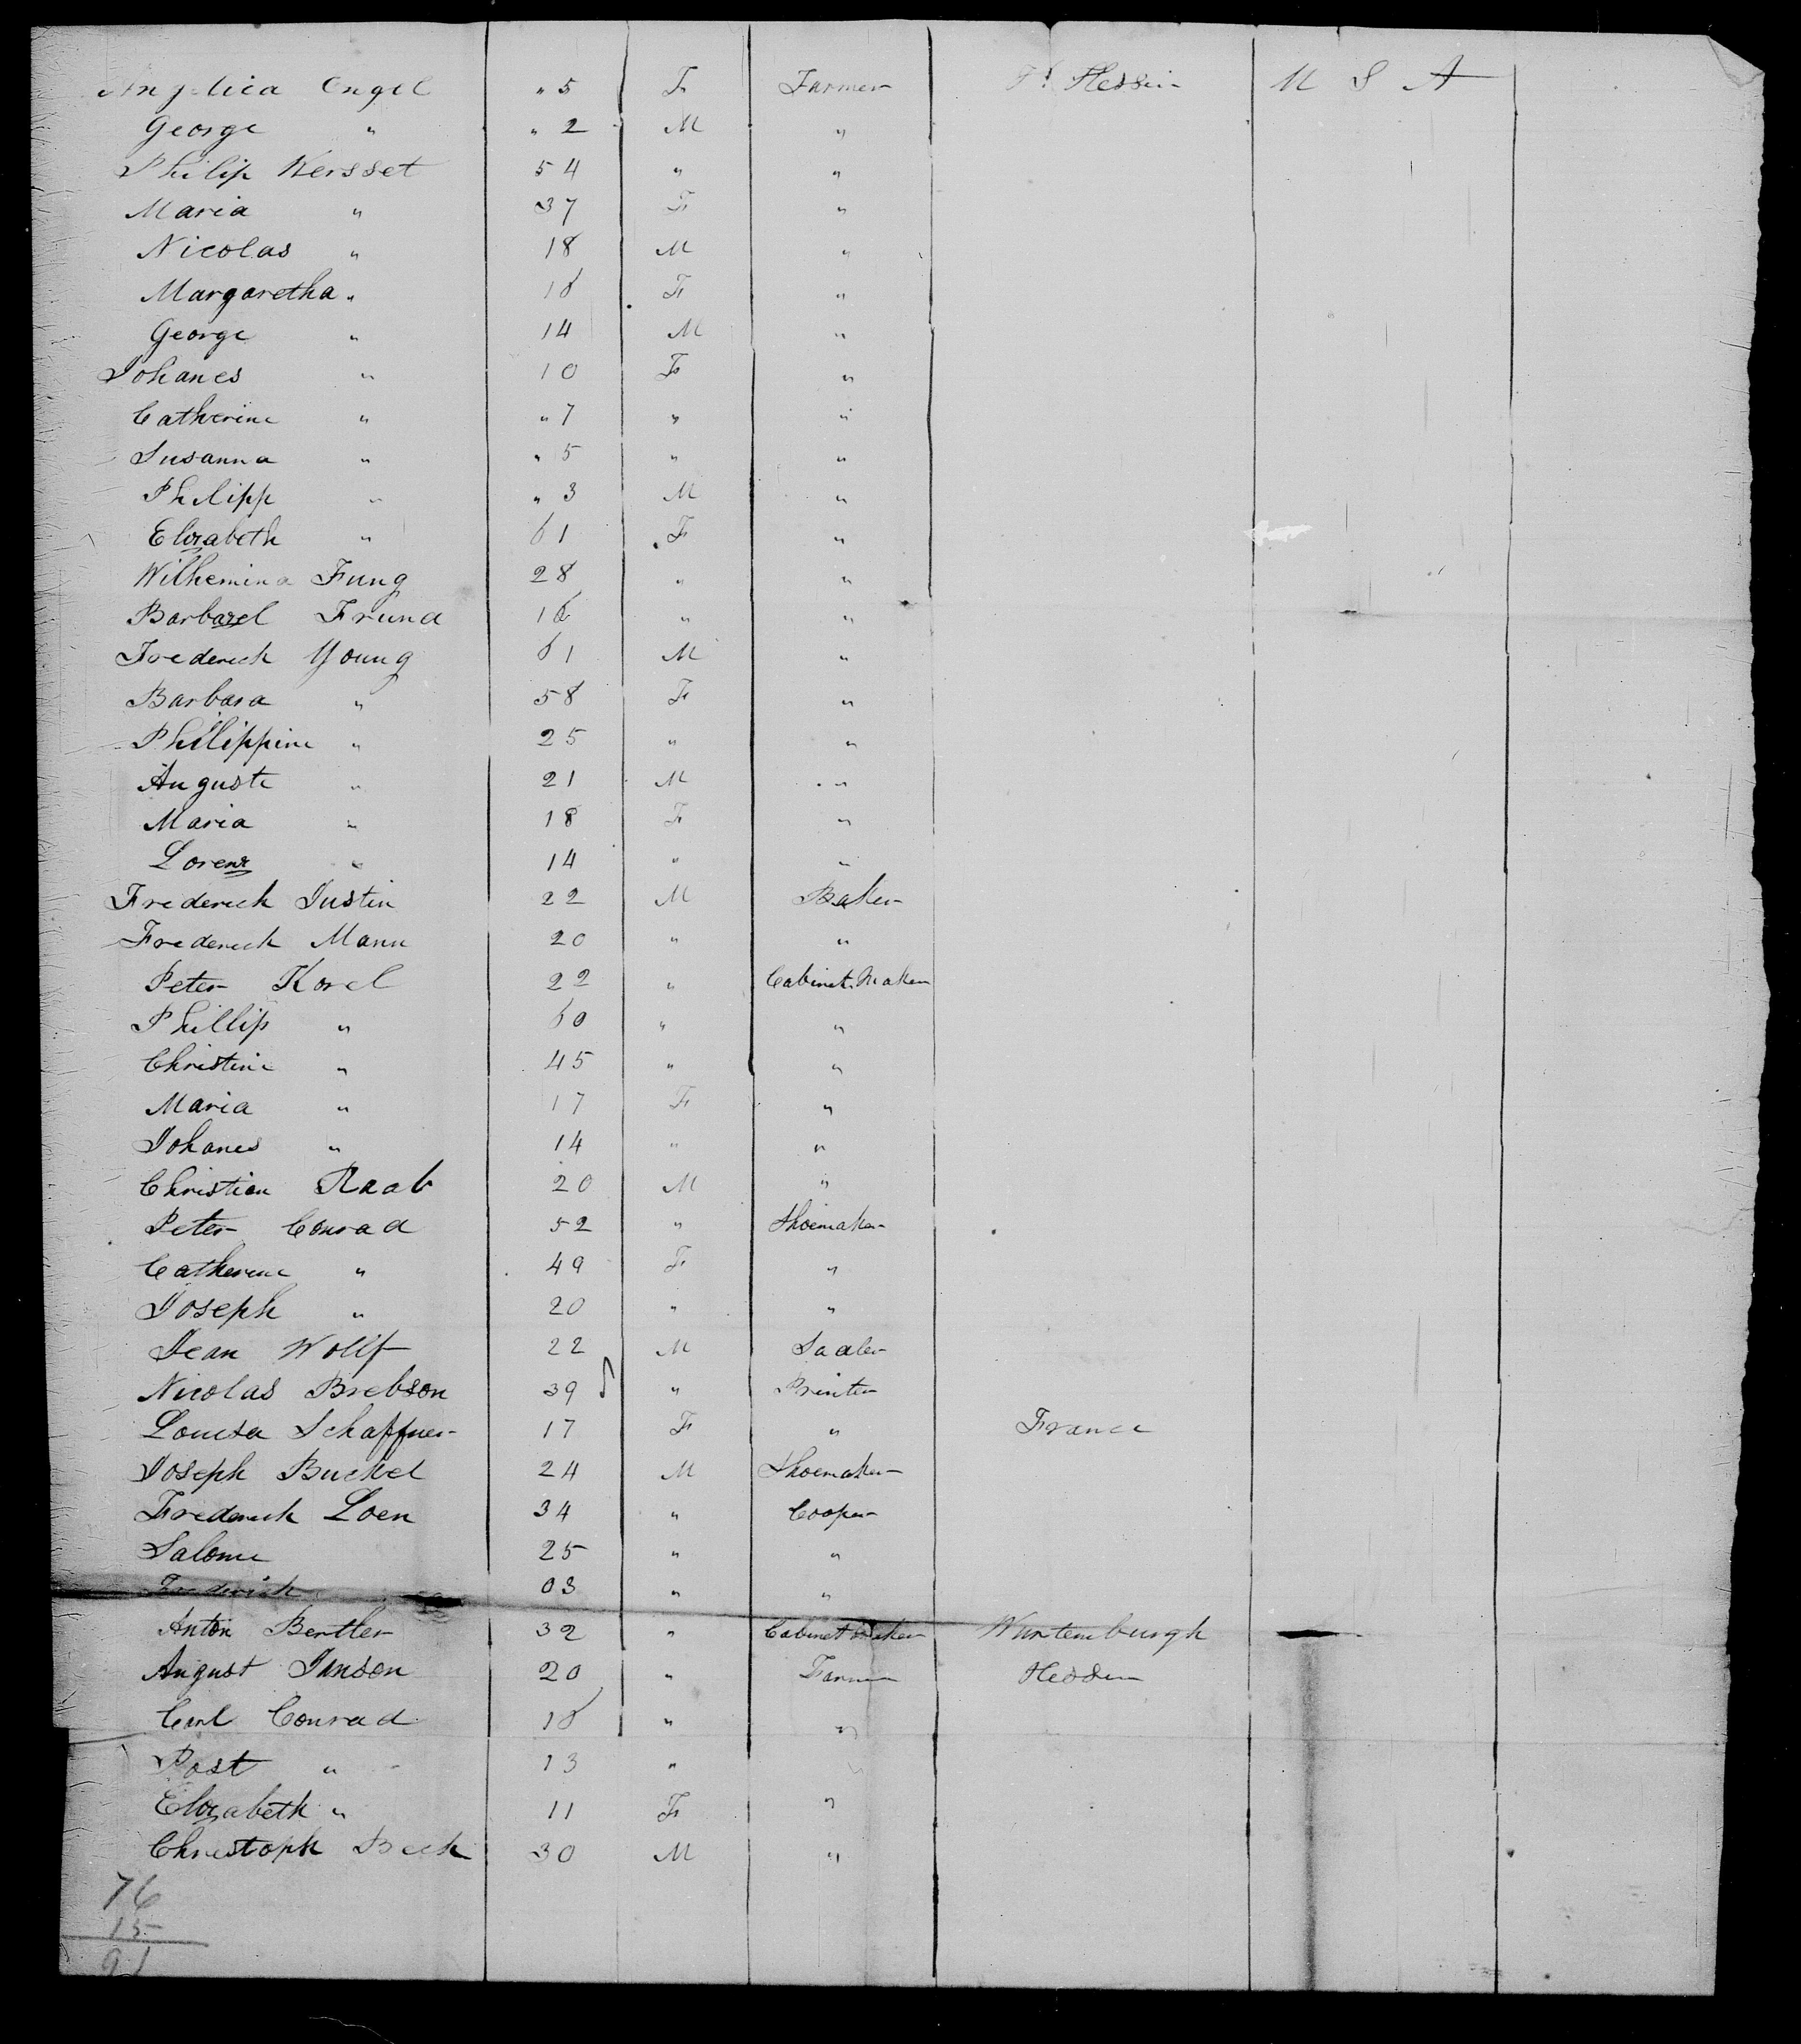 Angelica Engel " 5 F Farmer Hessin U S A
George " " 2 M "
Philip Wersset 54 " "
Maria " 37 F "
Nicolas " 18 M "
Margaretha " 16 F "
George " 14 M "
Johanes " 10 F "
Catherine " " 7 " "
Susanna " " 5 " "
Philipp " " 3 M "
Elizabeth " 61 F "
Wilhemina Fung 28 " "
Barbael Frund 16 " "
Frederick Young 61 M "
Barbara " 58 F "
Philippine " 25 " "
Auguste " 21 M "
Maria " 18 F "
Lorenz " 14 " "
Frederick Justin 22 M Baker
Frederick Mann 20 " "
Peter Korel 22 " Cabinet Maker
Phillip " 60 " "
Christine " 45 " "
Maria " 17 F "
Johanes " 14 " "
Christian Raab 20 M "
Peter Conrad 52 " Shoemaker
Catherine " 49 F "
Joseph " 20 " "
Jean Wollf 22 M Sadler
Nicolas Brebson 39 " Printer
Louisa Schaffner 17 F " France
Joseph Buckel 24 M Shoemaker
Frederick Loen 34 " Cooper
Salome 25 " "
Frederick 03 " "
Anton Bertler 32 " Cabinet Maker Wurtemburgh
August Janson 20 " Farmer Hessen
Carl Conrad 16 " "
Post " 13 " "
Elizabeth " 11 F "
Christoph Beck 30 M "
76
15
91